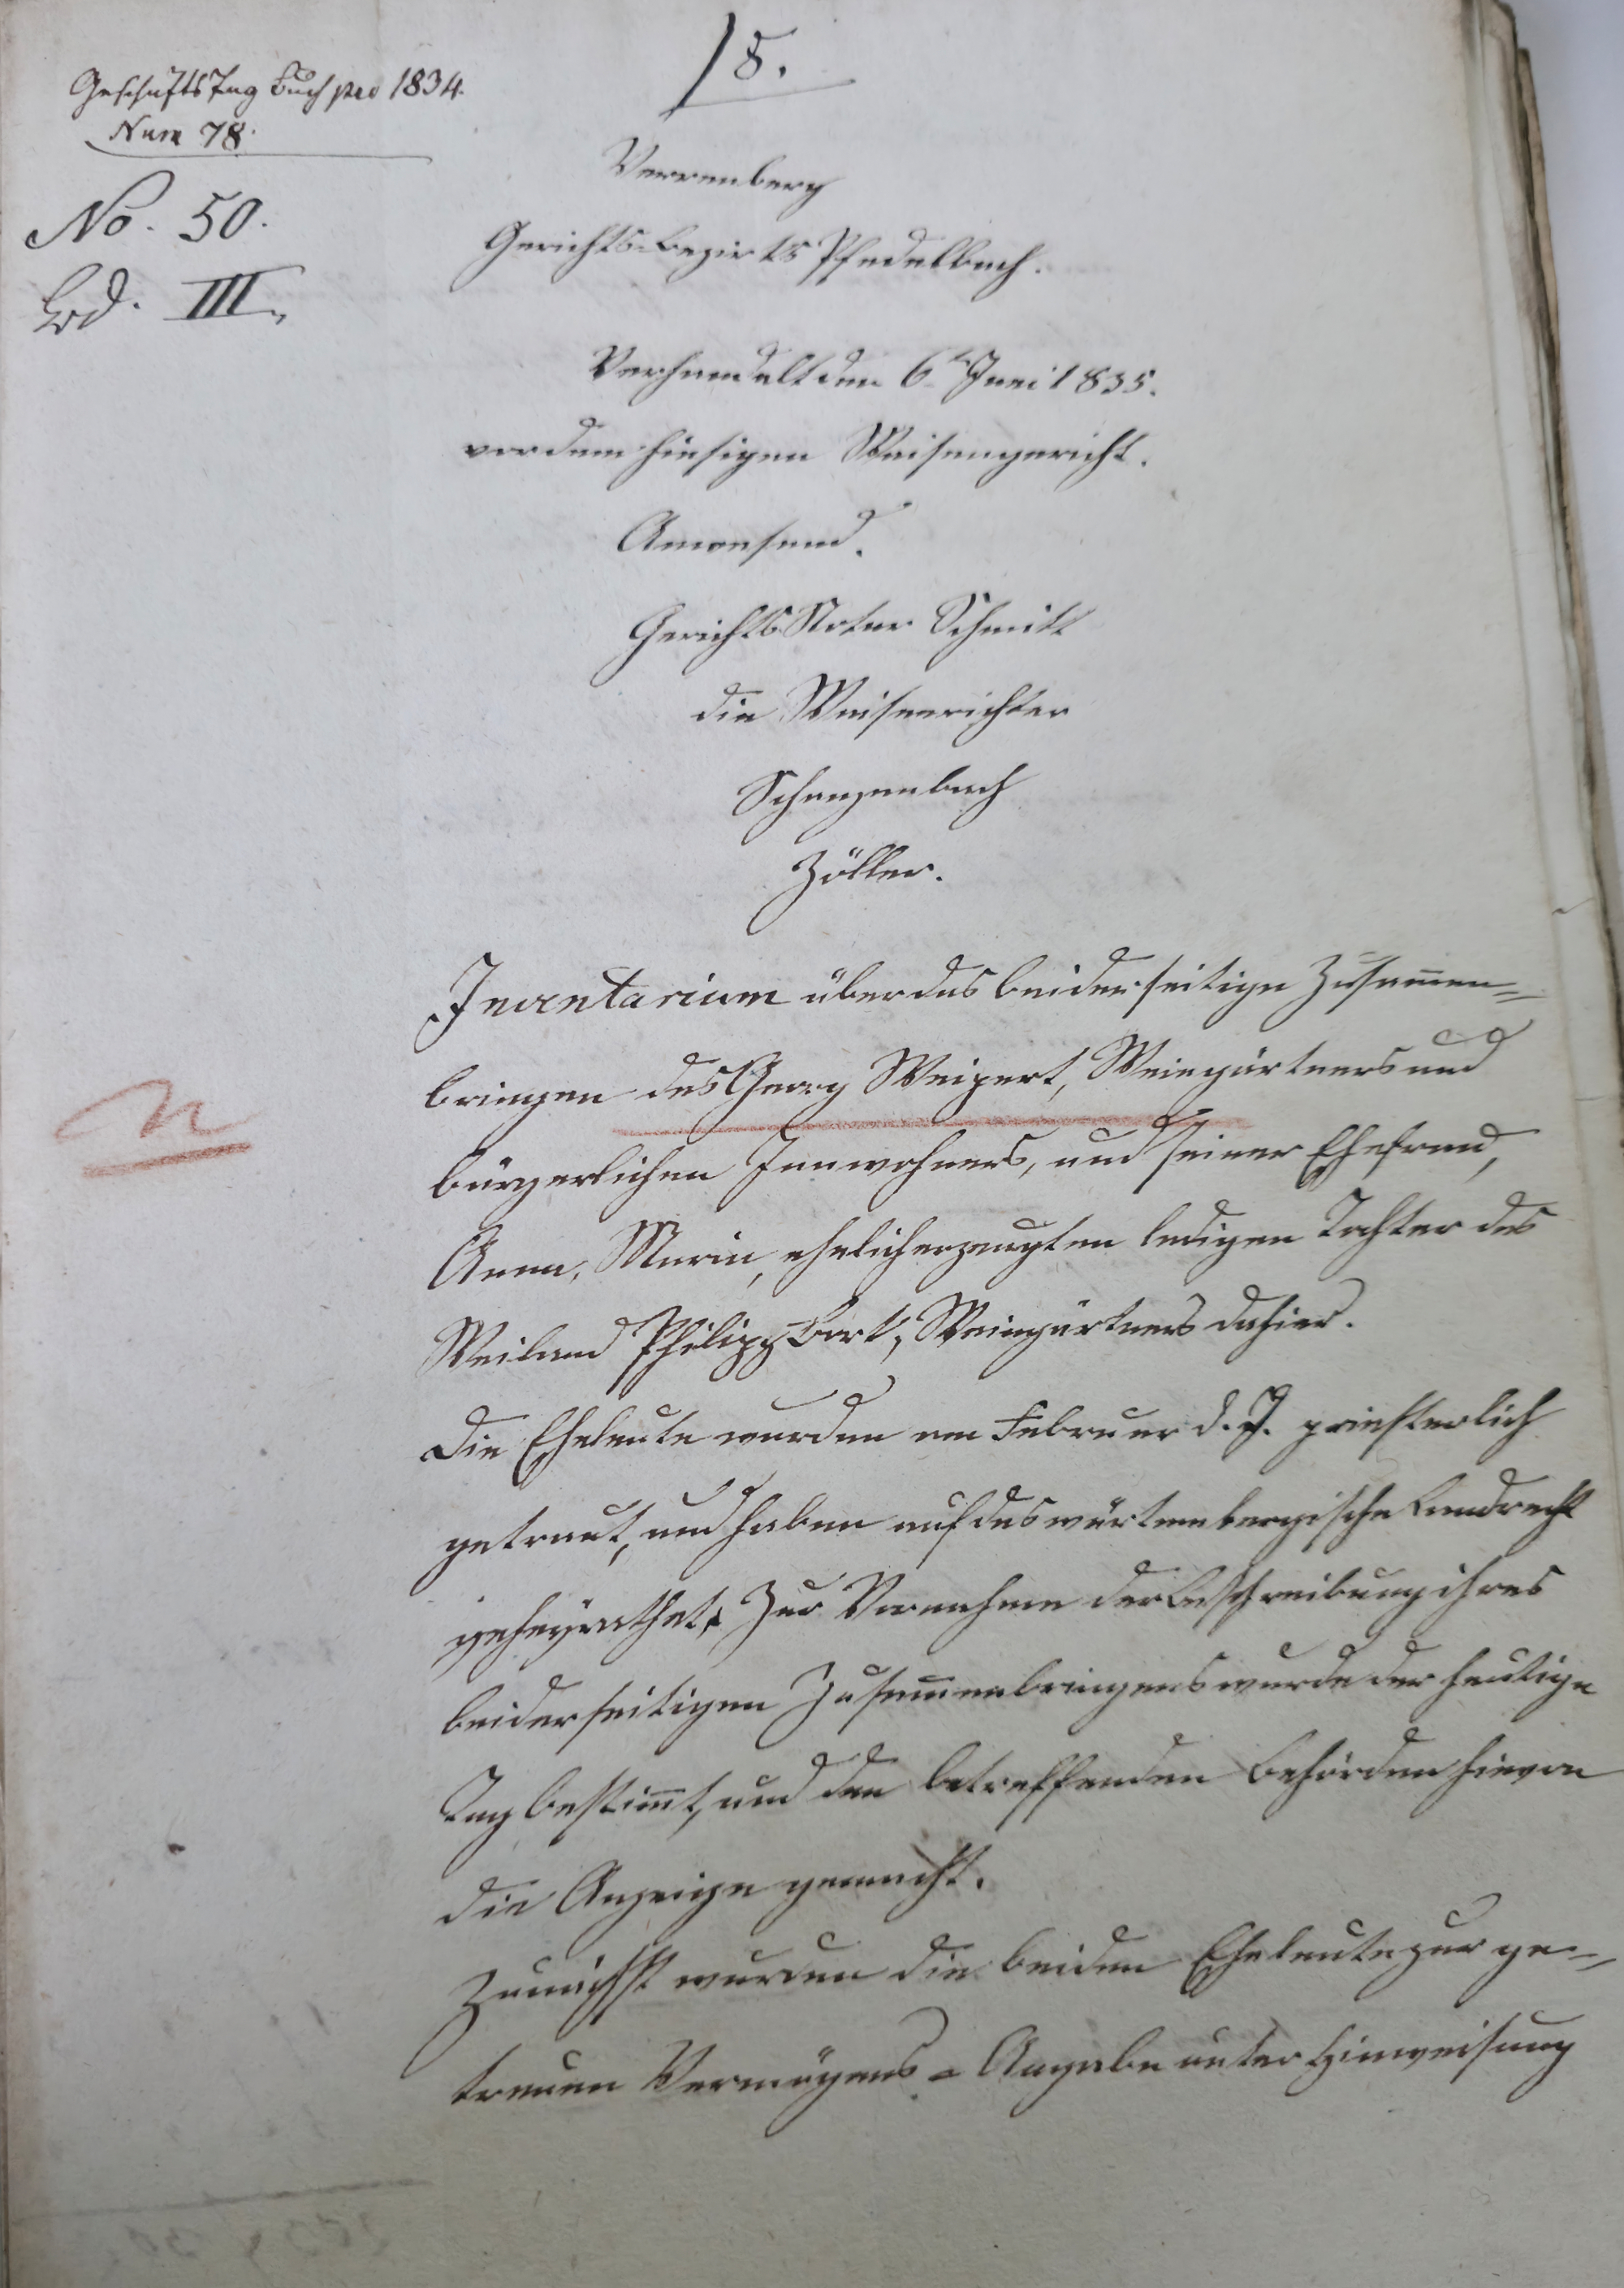 18.
Geschäfts Tag Buch pro 1834.
Num 78.
No. 50.
Bd. III.
Verrenberg
Gerichts-bezirks Pfedelbach.
Verhandelt den 6t Juni 1835.
vor dem hiesigen Waisengericht.
Anwesend.
Gerichts Notar Schmitt
die Waisenrichter
Schanzenbach
Zöller.
Inventarium über das beiderseitige Zusam̄en=
bringen des Georg Weipert, Weingärtners und
bürgerlichen Innwohners, und seiner Ehefrau,
Anna, Maria, ehelich erzeugten ledigen Tochter des
Weiland Philipp Bort, Weingärtners dahier.
Die Eheleute wurden am Februar d. J. priesterlich
getraut, und haben auf das würtembergische Landrecht
geheyrathet. Zur Vornahme der Beschreibung ihres
beiderseitigen Zusam̄enbringens wurde der heutige
Tag bestim̄t, und den betreffenden Behörden hievon
die Anzeige gemacht.
Zunächst wurden die beiden Eheleute zur ge=
treuen Vermögens = Angabe unter Hinweisung